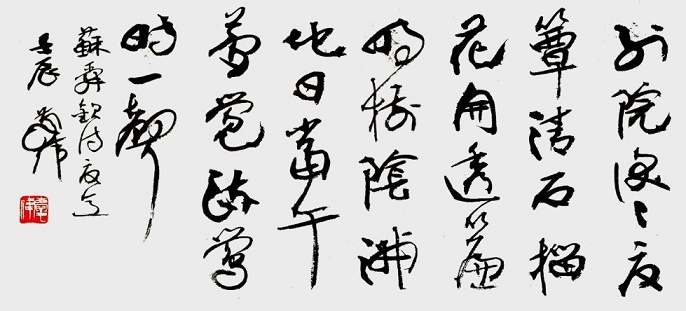 别院深々夏
簟清石榴
花開透簾
明樹陰滿
地日當午
夢覺流鶯
時一聲
蘇舜欽詩夏意
壬辰